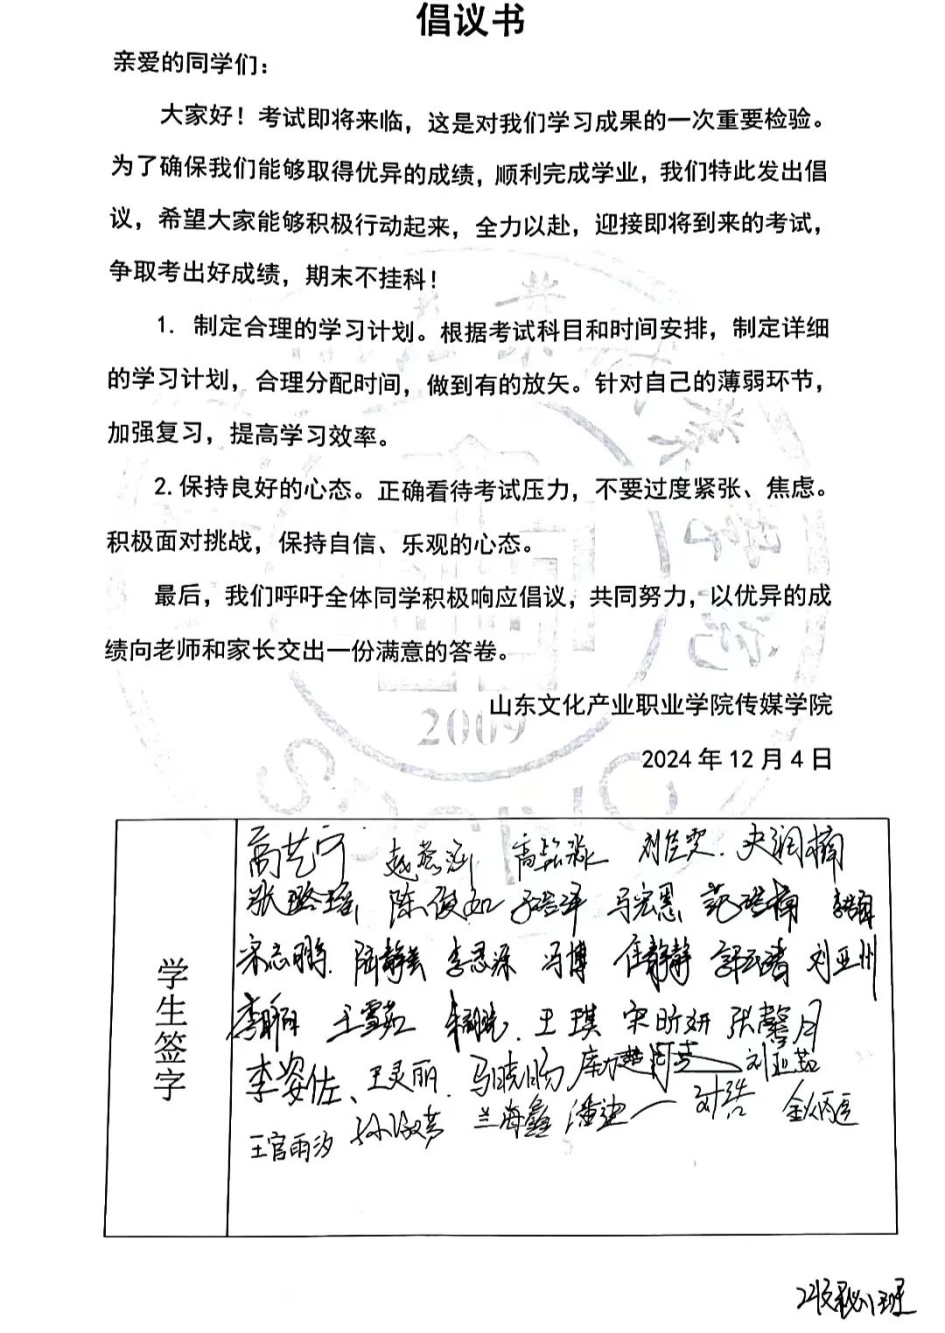 倡议书
亲爱的同学们：
大家好！考试即将来临，这是对我们学习成果的一次重要检验。
为了确保我们能够取得优异的成绩，顺利完成学业，我们特此发出倡
议，希望大家能够积极行动起来，全力以赴，迎接即将到来的考试，
争取考出好成绩，期末不挂科！
1. 制定合理的学习计划。根据考试科目和时间安排，制定详细
的学习计划，合理分配时间，做到有的放矢。针对自己的薄弱环节，
加强复习，提高学习效率。
2.保持良好的心态。正确看待考试压力，不要过度紧张、焦虑。
积极面对挑战，保持自信、乐观的心态。
最后，我们呼吁全体同学积极响应倡议，共同努力，以优异的成
绩向老师和家长交出一份满意的答卷。
2009
山东文化产业职业学院传媒学院
2024 年 12 月 4 日
学生签字
高艺宁 刘佳雯 史润楠
张璐瑶 陈俊如 马宏恩
宋志鹏 陆静美 李思源 冯博 任静静 刘亚州
王雪茹 王琪 宋昕妍 张馨月
李姿佐、王灵丽 马晓旸
王官雨汐 兰海鑫 刘浩